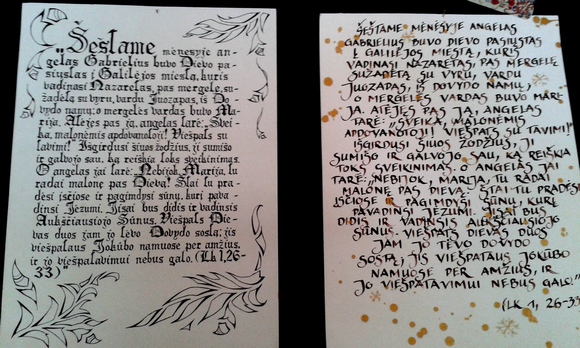 „Šeštame mėnesyje an-
gelas Gabrielius buvo Dievo pa-
siųstas į Galilėjos miestą, kuris
vadinasi Nazaretas, pas mergelę, su-
žadėtą su vyru, vardu Juozapas, iš Do-
vydo namų; o mergelės vardas buvo Ma-
rija. Atėjęs pas ją, angelas tarė: „Svei-
ka, malonėmis apdovanotoji! Viešpats su
tavimi!" Išgirdusi šiuos žodžius, ji sumišo
ir galvojo sau, ką reiškia toks sveikinimas.
O angelas jai tarė: Nebijok, Marija, tu
radai malonę pas Dievą! Štai tu pra-
dėsi įsčiose ir pagimdysi sūnų, kurį pava-
dinsi Jėzumi. Jisai bus didis ir vadinsis
Aukščiausiojo Sūnus. Viešpats Die-
vas duos jam jo tėvo Dovydo sostą; jis
viešpataus Jokūbo namuose per amžius,
ir jo viešpatavimui nebus galo. (Lk 1,26-
33)"
ŠEŠTAME MĖNESYJE ANGELAS
GABRIELIUS BUVO DIEVO PASIŲSTAS
Į GALILĖJOS MIESTĄ, KURIS
VADINASI NAZARETAS, PAS MERGELĘ,
SUŽADĖTĄ SU VYRU, VARDU
JUOZAPAS, IŠ DOVYDO NAMŲ,
O MERGELĖS VARDAS BUVO MARI-
JA. ATĖJĘS PAS JĄ, ANGELAS
TARĖ: „SVEIKA, MALONĖMIS
APDOVANOTOJI! VIEŠPATS SU TAVIMI!"
IŠGIRDUSI ŠIUOS ŽODŽIUS, JI
SUMIŠO IR GALVOJO SAU, KĄ REIŠKIA
TOKS SVEIKINIMAS. O ANGELAS JAI
TARĖ: „NEBIJOK, MARIJA, TU RADAI
MALONĘ PAS DIEVĄ. ŠTAI TU PRADĖSI
ĮSČIOSE IR PAGIMDYSI SŪNŲ, KURĮ
PAVADINSI JĖZUMI. JISAI BUS
DIDIS IR VADINSIS AUKŠČIAUSIOJO
SŪNUS. VIEŠPATS DIEVAS DUOS
JAM JO TĖVO DOVYDO
SOSTĄ, JIS VIEŠPATAUS JOKŪBO
NAMUOSE PER AMŽIUS, IR
JO VIEŠPATAVIMUI NEBUS GALO!"
(LK 1, 26-33